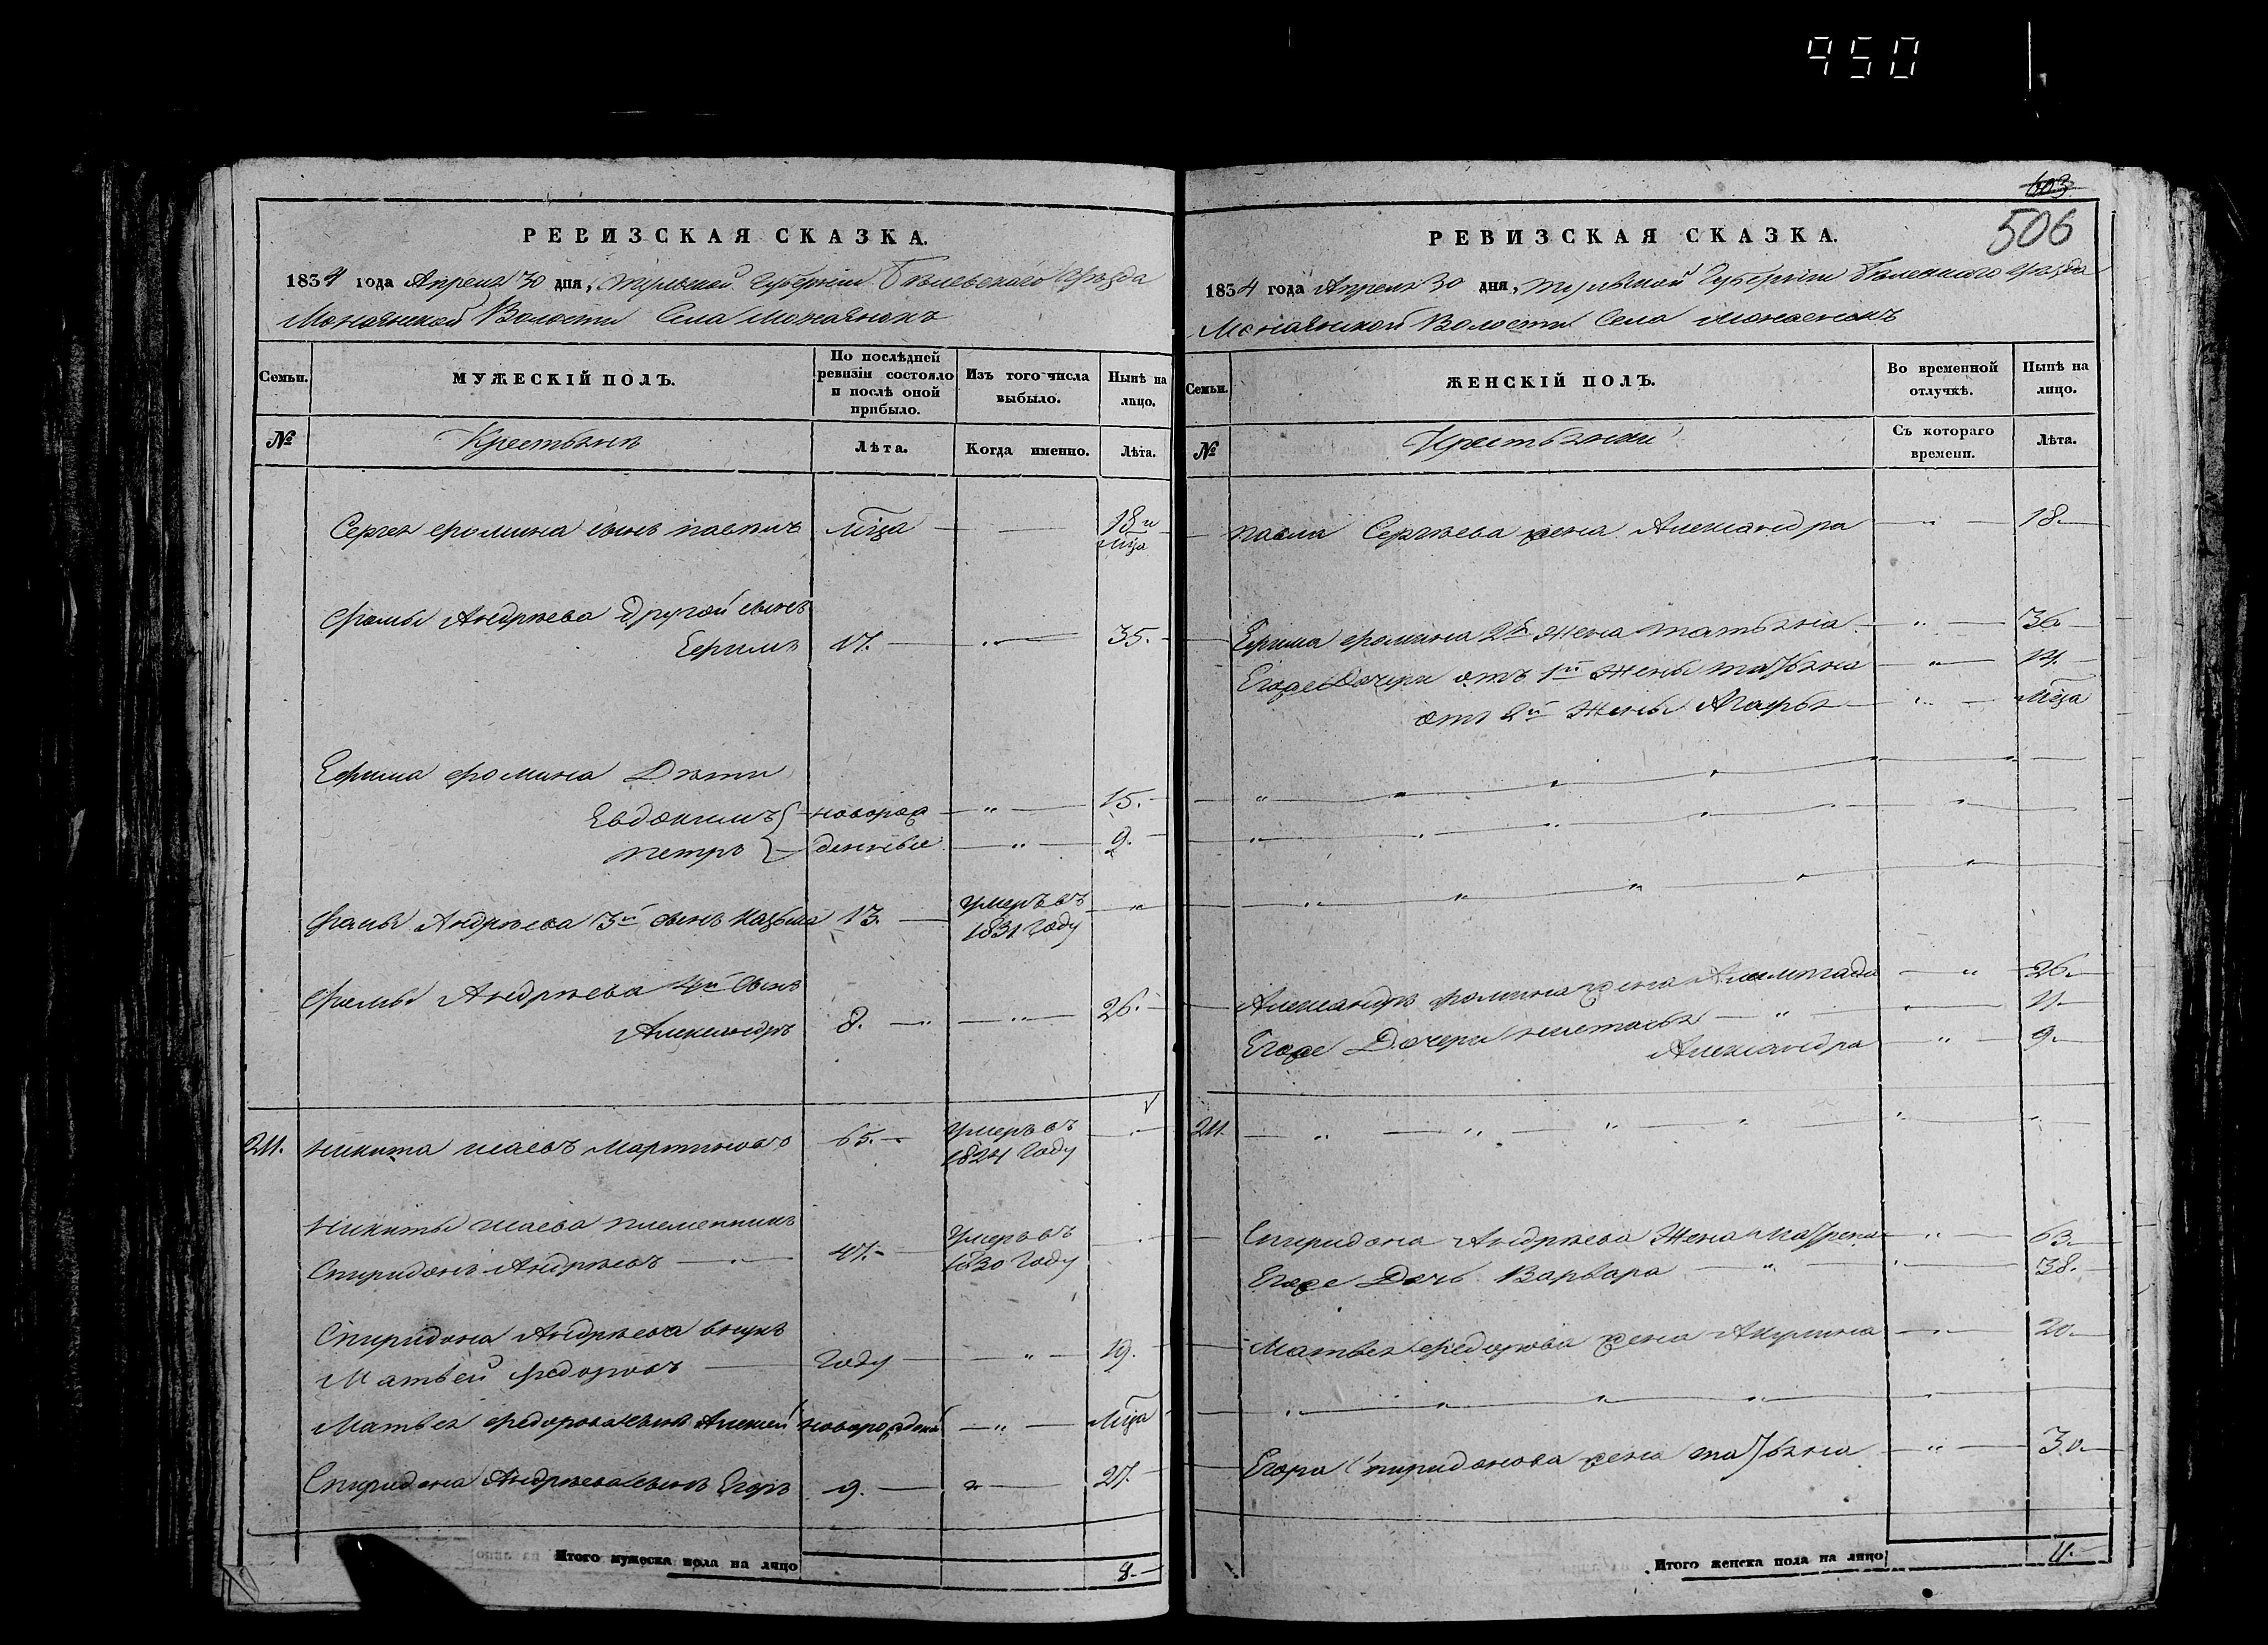 950
РЕВИЗСКАЯ СКАЗКА.
1834 года Апреля 30 дня, Тульской Губернии Белевскаго Уѣзда
Волости Села
Семьи.
МУЖЕСКІЙ ПОЛЪ.
По послѣдней ревизіи состояло и послѣ оной прибыло.
Изъ того числа выбыло.
Нынѣ на лицо.
№
Крестьянъ
Лѣта.
Когда именно.
Лѣта.
Сергея Фомина сынъ Павилъ мѣца — 18 и мѣца
Фомы Андрѣева другой сынъ
Ефимъ 17. — 35.
Ефима Фомина Дѣти
Евдокимъ новорож — " — 15.
Петръ денные — " — 9.
Фомы Андрѣева 3й сынъ Козьма 13. — умеръ въ 1831 году "
Фомы Андрѣева 4й сынъ
Александръ 8. — " — 26.
211. Никита Исаевъ Мартиновъ 65. — умеръ въ 1824 году
Никиты Исаева племенникъ
Спиридонъ Андрѣевъ 47. — умеръ въ 1830 году
Спиридона Андрѣева внукъ
Матвей Федоровъ — году — " — 19.
Матвея Федорова сынъ Алексей новорожденой — " — мѣца
Спиридона Андрѣева сынъ Егоръ 9. — " — 27.
Итого мужеска пола на лицо
8.
603
506
РЕВИЗСКАЯ СКАЗКА.
1834 года Апреля 30 дня, Тульской Губернии Белевского Уѣзда
Волости Села
Семьи.
ЖЕНСКІЙ ПОЛЪ.
Во временной отлучкѣ.
Нынѣ на лицо.
№
Съ котораго времени.
Лѣта.
Павла Сергѣева жена Александра — " — 18.
Ефима Фомина 2я жена Татьяна — " — 36
Егоже Дочери отъ 1й жены Татьяна — " — 14.
отъ 2й жены Агафья — " — мѣца
Александра Фомина жена — " — 26.
Егоже Дочери Наталья — " —
Александра " — 9.
211.
Спиридона Андрѣева жена Матрена — " — 63.
Егоже Дочь Варвара — " — 38.
Матвея Федорова жена Акулина — " — 20.
Егора Спиридонова жена Татьяна — " — 30.
Итого женска пола на лицо
11.